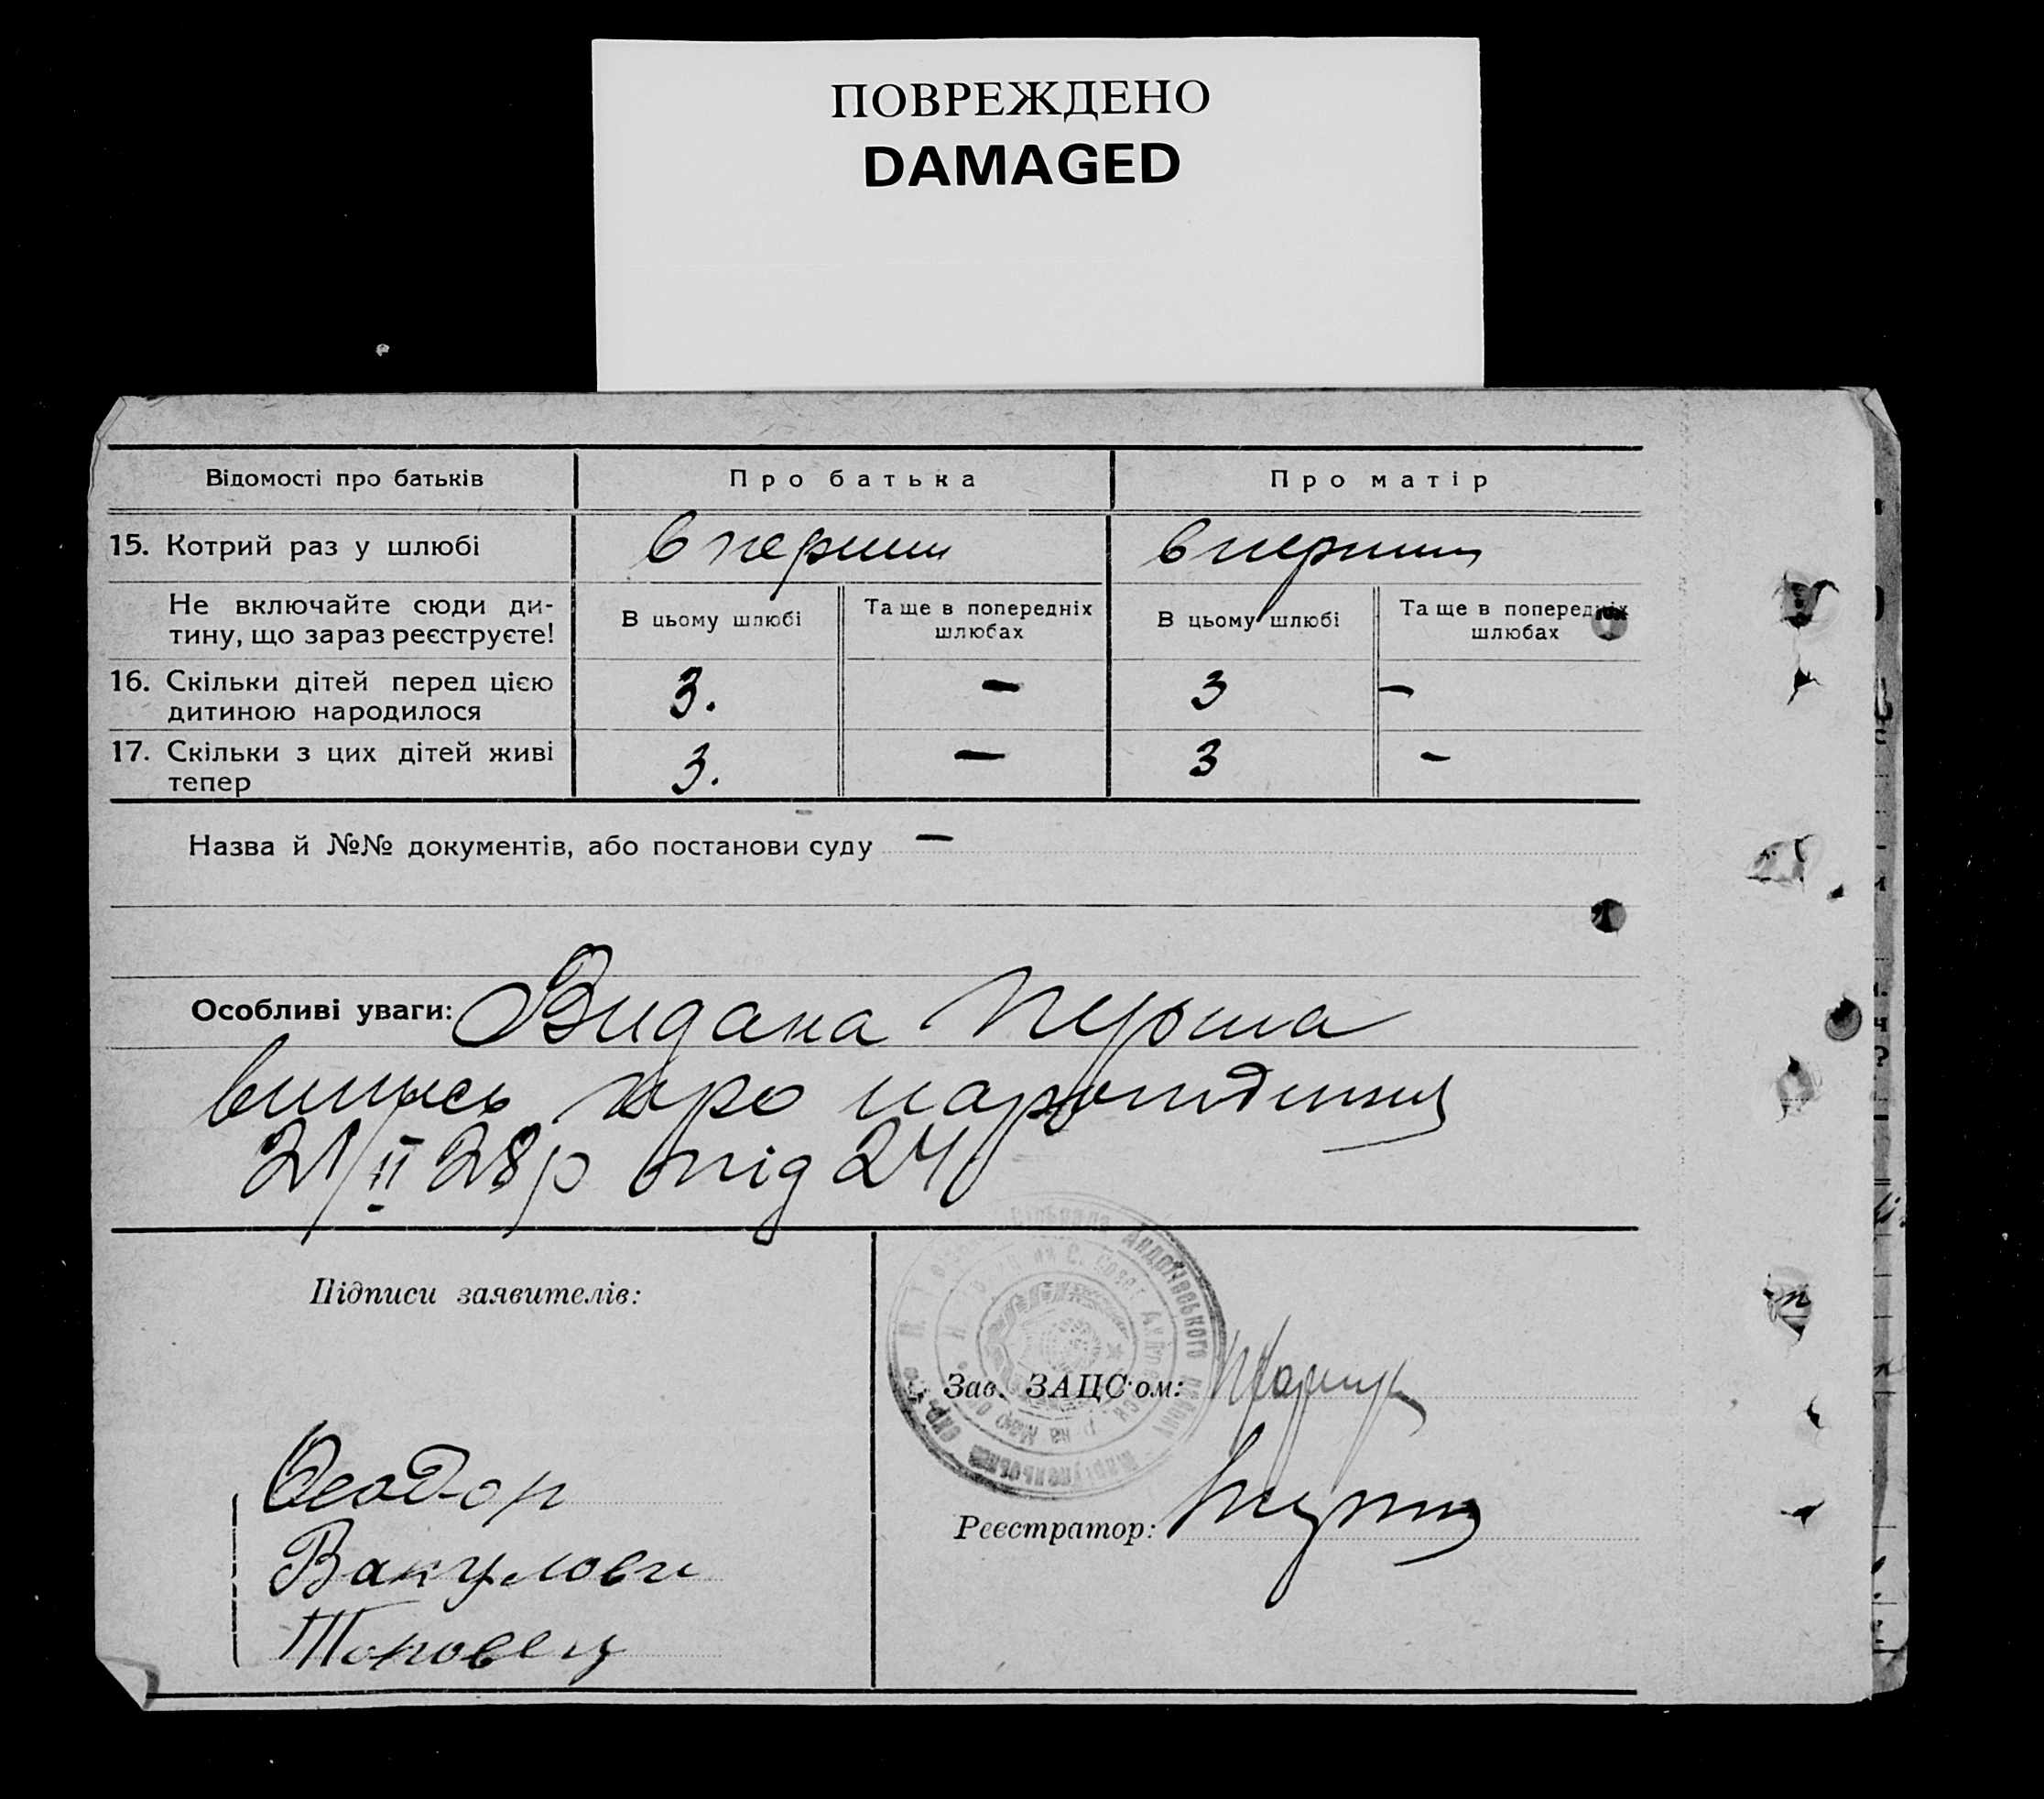 ПОВРЕЖДЕНО
DAMAGED
Відомості про батьків
Про батька
Про матір
15. Котрий раз у шлюбі
вперши
вперши
Не включайте сюди ди-
тину, що зараз реєструєте!
В цьому шлюбі
Та ще в попередніх
шлюбах
В цьому шлюбі
Та ще в попередніх
шлюбах
16. Скільки дітей перед цією
дитиною народилося
3.
–
3
–
17. Скільки з цих дітей живі
тепер
3.
–
3
–
Назва й №№ документів, або постанови суду –
Особливі уваги: Видана перша
випись про народження
21/II 28 р під 24
Підписи заявителів:
Зав. ЗАЦС'ом:
Феодор
Вакулови
Реєстратор: